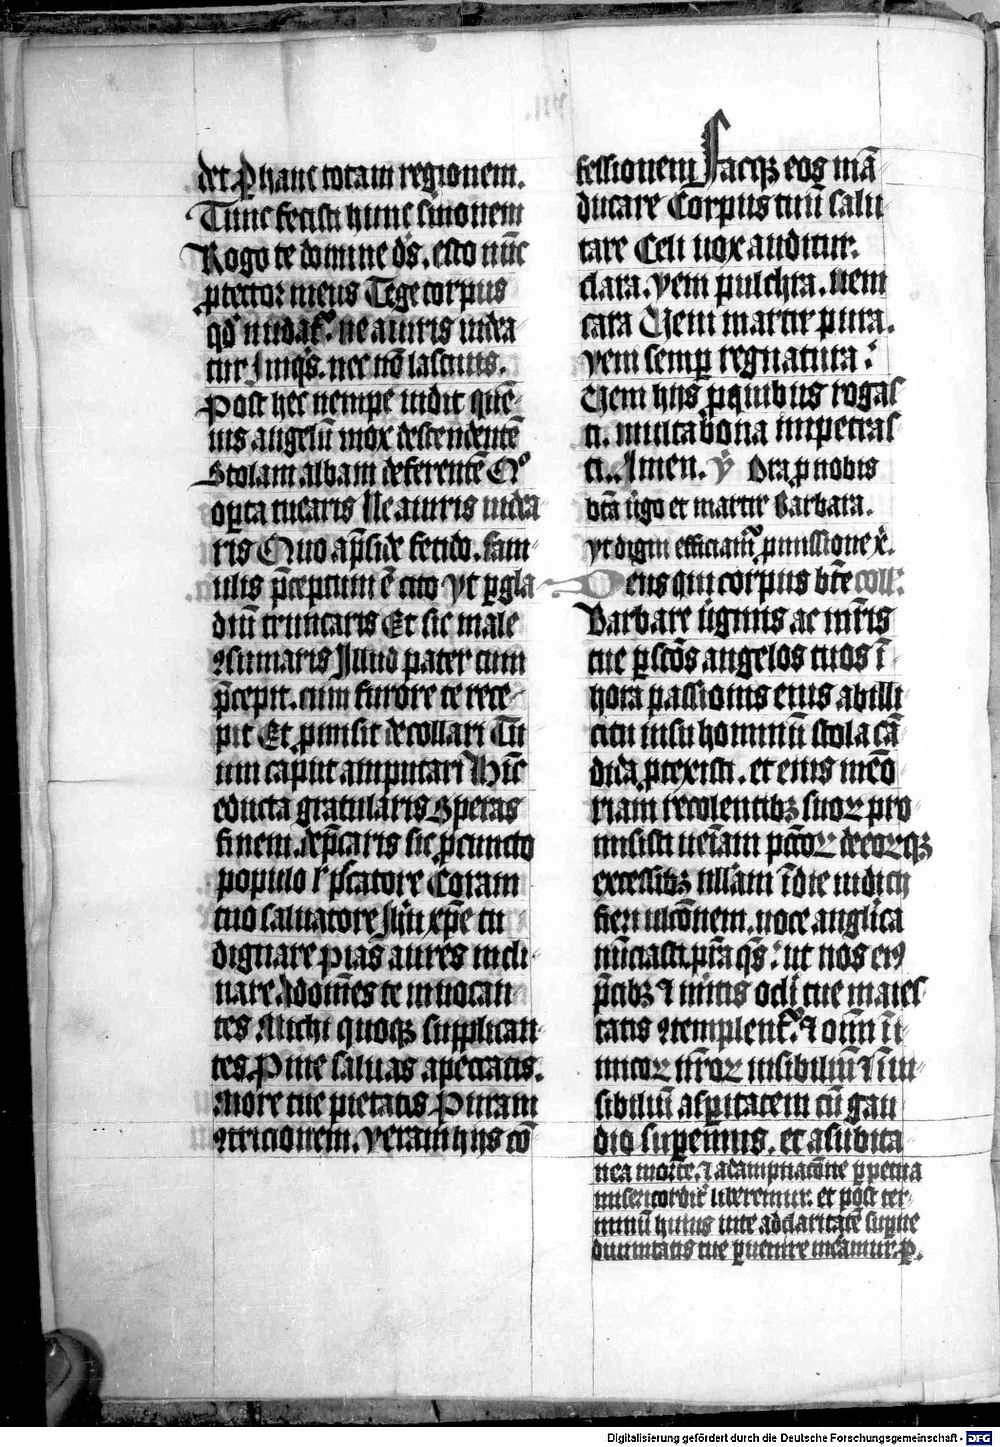 det Per hanc totam regionem.
Tunc fecisti hunc sinonem
Rogo te domine d̄s. esto nūc
ꝓtector meus Tege corpus
qd̛ nudat᷑. ne a viris videa
tur Iniqs̄. nec nō lascivis.
Post hec nempe vidit que
ius angelū mox descendentē
Stolam albam deferentē Q̊
oꝑta tucaris Ne a viris videa
ris Quo ap̄side fetido. fam
ulis p̄ceptum ē cito vt ꝑ gla
diū truncaris Et sic male
ꝯsumaris Illud pater cum
p̄cepit. cum furore te rece
pit Et ꝓmisit decollari Tu
um caput amputari Hinc
educta gratularis Speras
finem. dep̄caris sic ꝓ cuncto
populo
tuo salvatore Ihū xp̄e tu
dignare pias aures incli
nare Ad om̄es te invocan
tes Michi quoqꝫ supplican
tes. Per me salvas a peccatis.
More tue pietatis Puram
ꝯtricionem. veram hijs cō
fessionem Facqꝫ eos mā
ducare Corpus tuū salu
tare Celi vox auditur.
clara. Veni pulchra. veni
cara Veni martir pura.
Veni semꝑ regnatura.
Veni hijs ꝓ quibus rogas
ti. multa bona impetras
ti. Amen. ℣ Ora ꝓ nobis
btā v̄go et martir Barbara.
Vt digni efficiam᷑ ꝓmissione xͥ.
Deus qui corpus bt̄e coll.
Barbare v̄ginis ac m̄ris
tue ꝑ sctōs angelos tuos ī
hora passionis eius ab illi
cito visu hominū stola cā
dida ꝓtexisti. et eius mēo
riam recolentibꝫ suoꝝ pro
misisti veniam pctōꝝ de eoꝝqꝫ
excessibꝫ ullam ī die iudicij
fieri ulcōnem. voce anglica
nūciasti. pr̄a qs̄. ut nos eiꝰ
p̄cibꝫ ⁊ mitis
tatis ꝯtemplent᷑. ⁊ om̄i īi
micoꝝ nr̄oꝝ visibiliū ⁊ īvi
sibiliū asꝑitatem cū gau
dio suꝑemus. et a subita
nea morte. ⁊ a dampnacōne ꝑpetua
misericordit̄ liberemur. et post ter
minū huius vite ad claritatē suꝑne
divinitatis tue ꝑvenire mēamur. ꝑ.
Digitalisierung gefördert durch die Deutsche Forschungsgemeinschaft - DFG